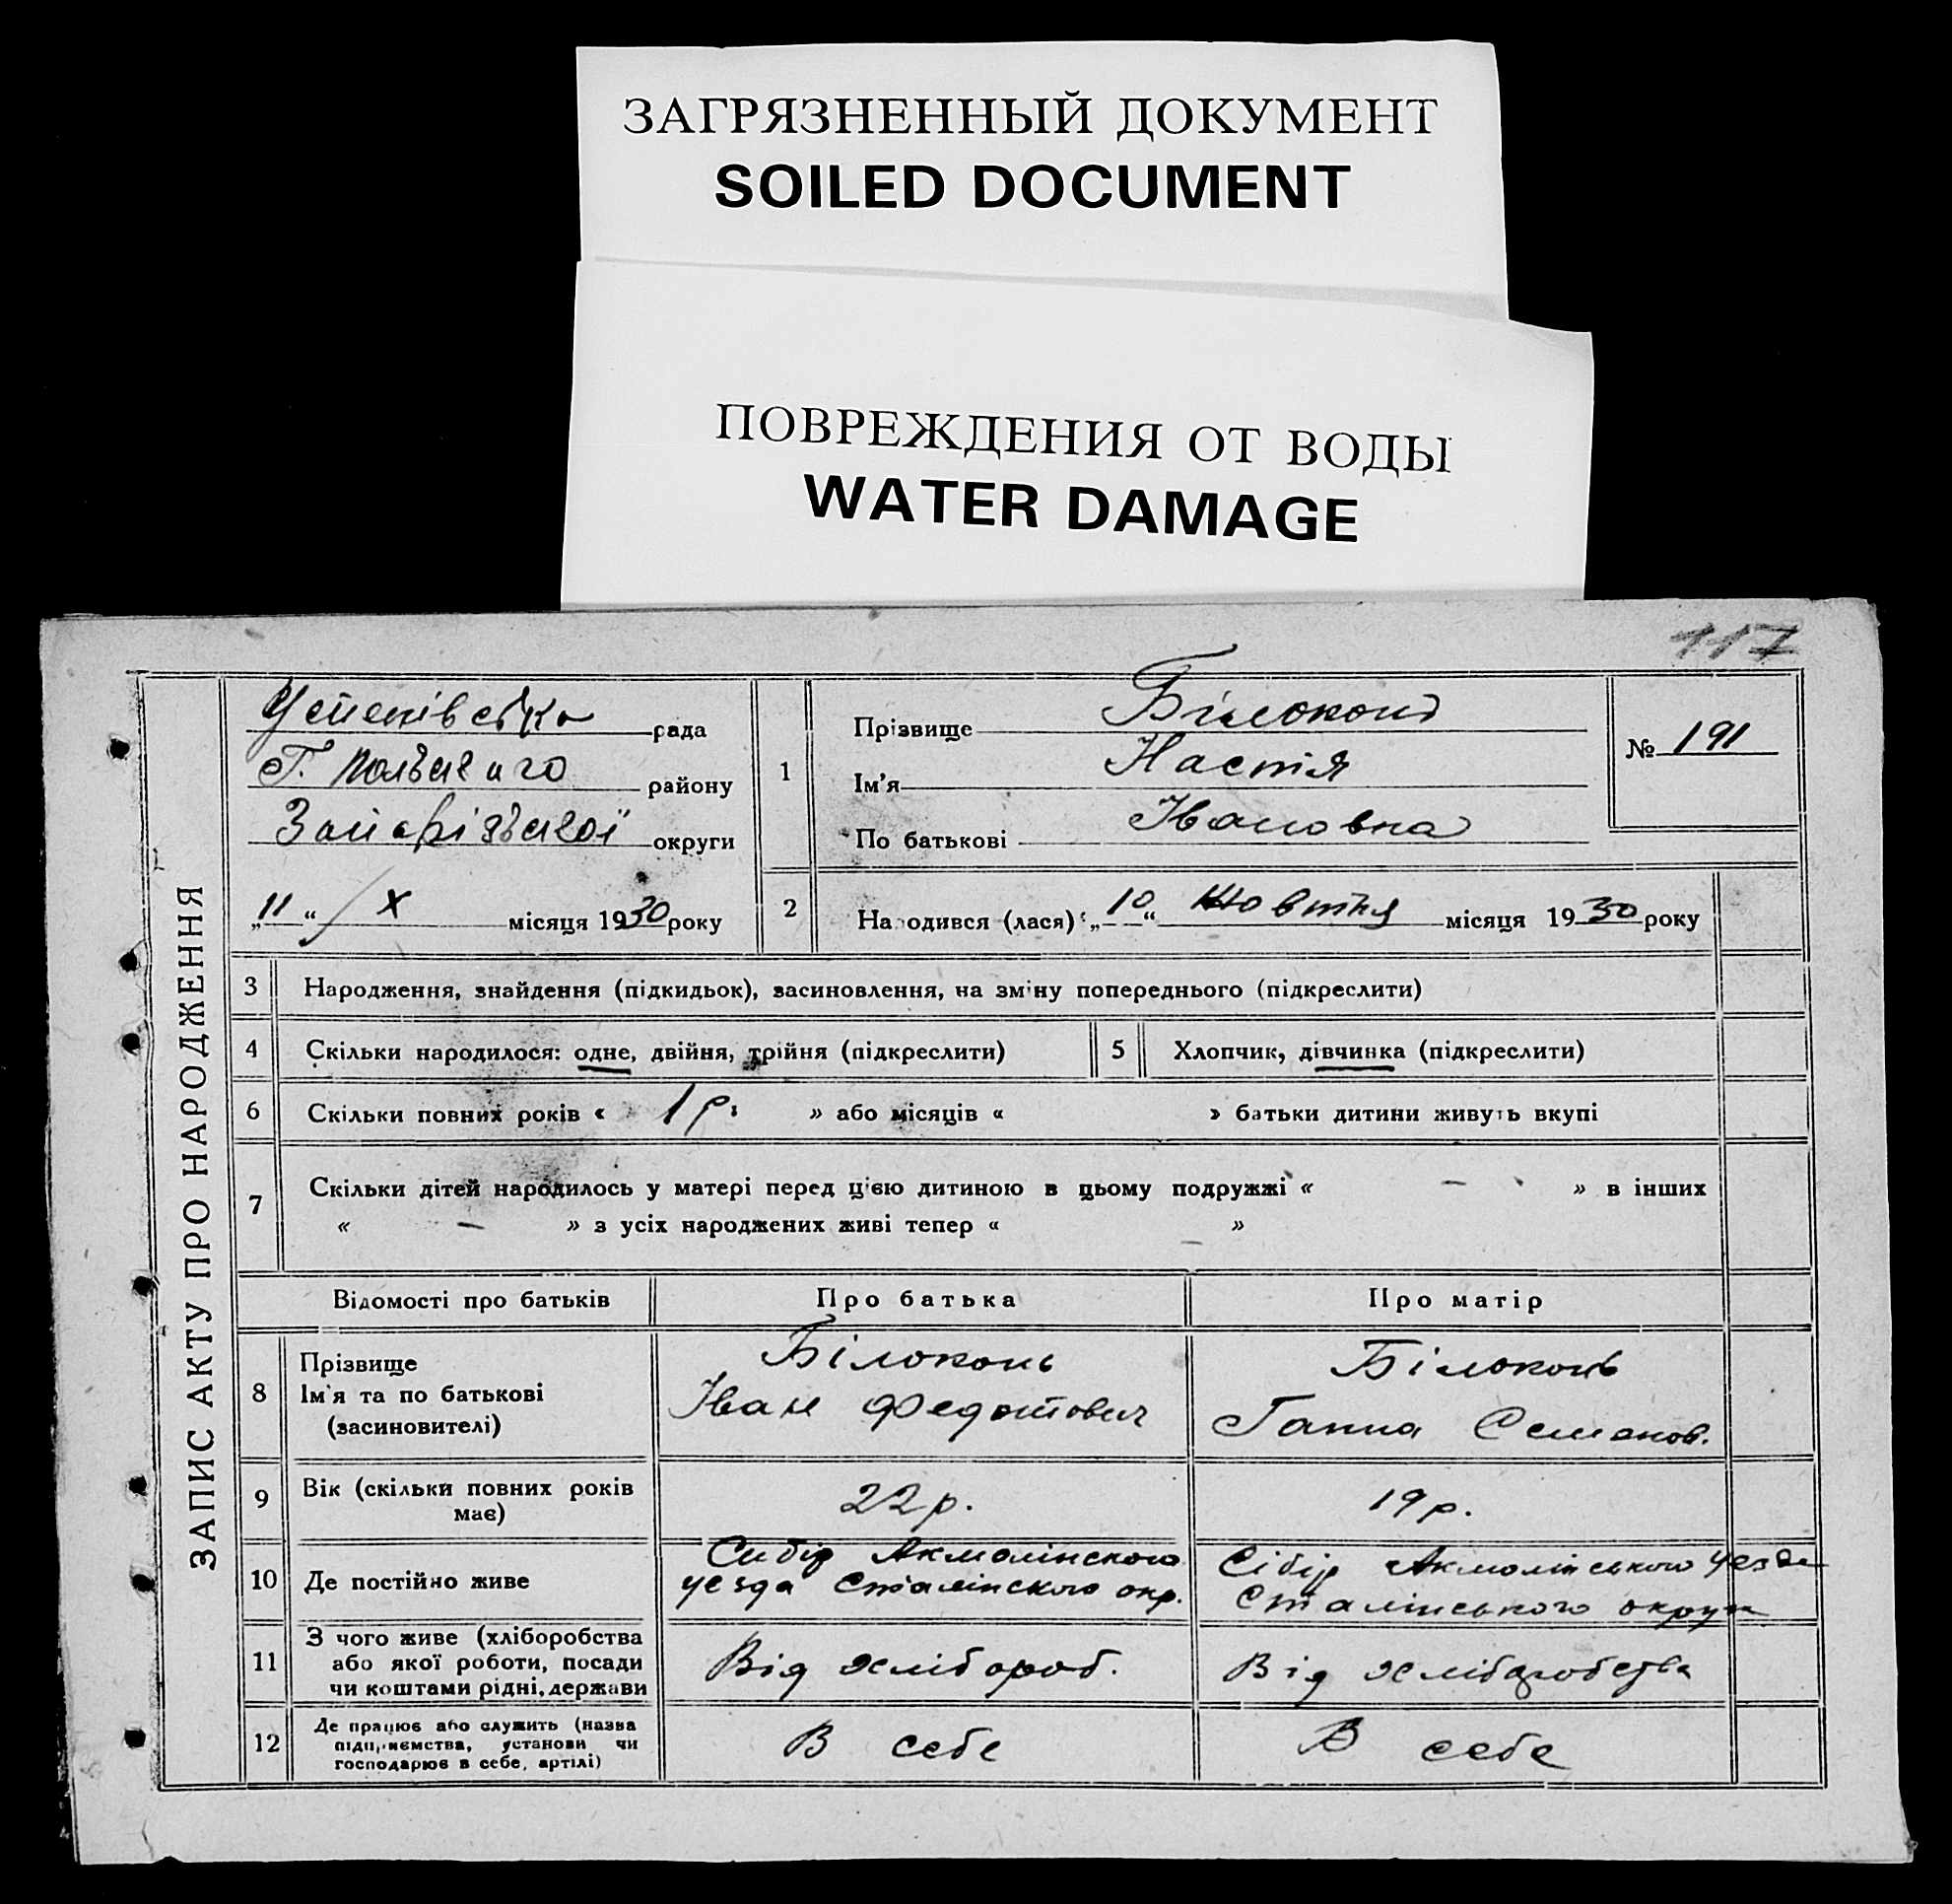 ЗАГРЯЗНЕННЫЙ ДОКУМЕНТ
SOILED DOCUMENT
ПОВРЕЖДЕНИЯ ОТ ВОДЫ
WATER DAMAGE
117
ЗАПИС АКТУ ПРО НАРОДЖЕННЯ
Успенівська рада
Г. Польського району
Запорізької округи
„11“ X місяця 1930 року
1
Прізвище Білоконь
Ім'я Настія
По батькові Івановна
№ 191
2 Народився (лася) „10“ Жовтня місяця 1930 року
3 Народження, знайдення (підкидьок), засиновлення, на зміну попереднього (підкреслити)
4 Скільки народилося: одне, двійня, трійня (підкреслити)
5 Хлопчик, дівчинка (підкреслити)
6 Скільки повних років « 1 р. » або місяців « » батьки дитини живуть вкупі
7 Скільки дітей народилось у матері перед цією дитиною в цьому подружжі « – » в інших
« – » з усіх народжених живі тепер « – »
Відомості про батьків Про батька Про матір
8 Прізвище
Ім'я та по батькові
(засиновителі)
Білоконь
Іван Федотович
Білоконь
Ганна Семенов.
9 Вік (скільки повних років
має)
22 р.
19 р.
10 Де постійно живе
Сибір Акмолінского
уезда Сталінского окр.
Сібір Акмолінського уезда
Сталінського округи
11 З чого живе (хліборобства
або якої роботи, посади
чи коштами рідні, держави
Від хлібороб.
Від хліборобства
12 Де працює або служить (назва
підприємства, установи чи
господарює в себе, артілі)
В себе
В себе